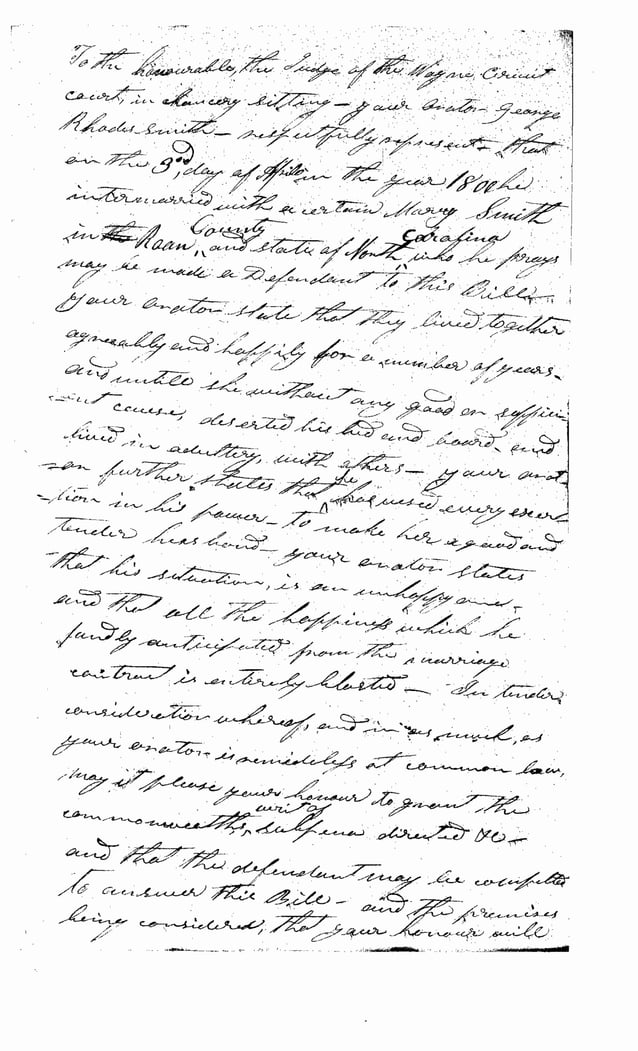 To the honourable, the Judge of the Wayne Circuit
court, in chancery sitting – your orator George
Rhodes Smith – respectfully represents – that
on the 3rd, day of Aprile in the year 1800 he
intermarried with a certain Mary Smith
County Carolina
in the Roan, and state of North, who he prays
may be made a Defendant to this Bill –
your orator state that they lived together
agreeably and happily for a number of years –
and untill she without any good or suffici-
-ent cause, deserted his bed and board – and
lived in adultery, with others – your orat-
he
-or further states that has used every exer-
-tion in his power – to make her a good and
tender husband – your orator states
that his situation, is an unhappy one –
and that all the happiness which he
fondly anticipated from the marriage
contract is entirely blasted – In tender
consideration whereof, and in as much, as
your orator is remediless at common law,
may it please your honour to grant the
writ of
commonwealths, subpena directed &c –
and that the defendant may be compelled
to answer this Bill – and the premises
being considered, that your honour will